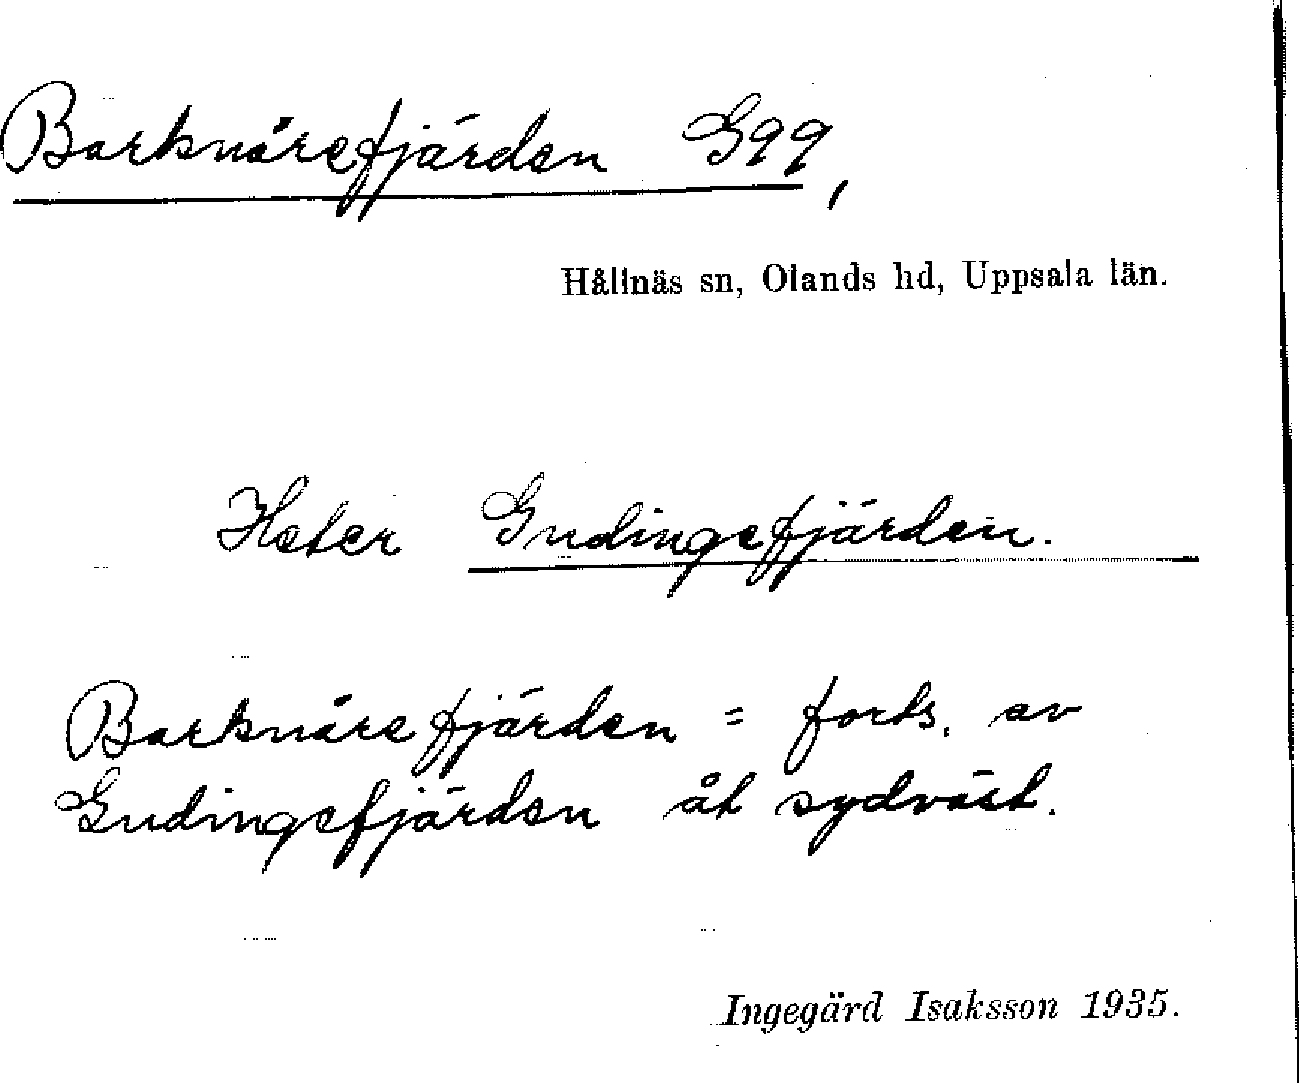 Barknårefjärden G99,
Hållnäs sn, Olands hd, Uppsala län.
Heter Gudingefjärden.
Barknårefjärden = forts. av
Gudingefjärden åt sydväst.
Ingegärd Isaksson 1935.